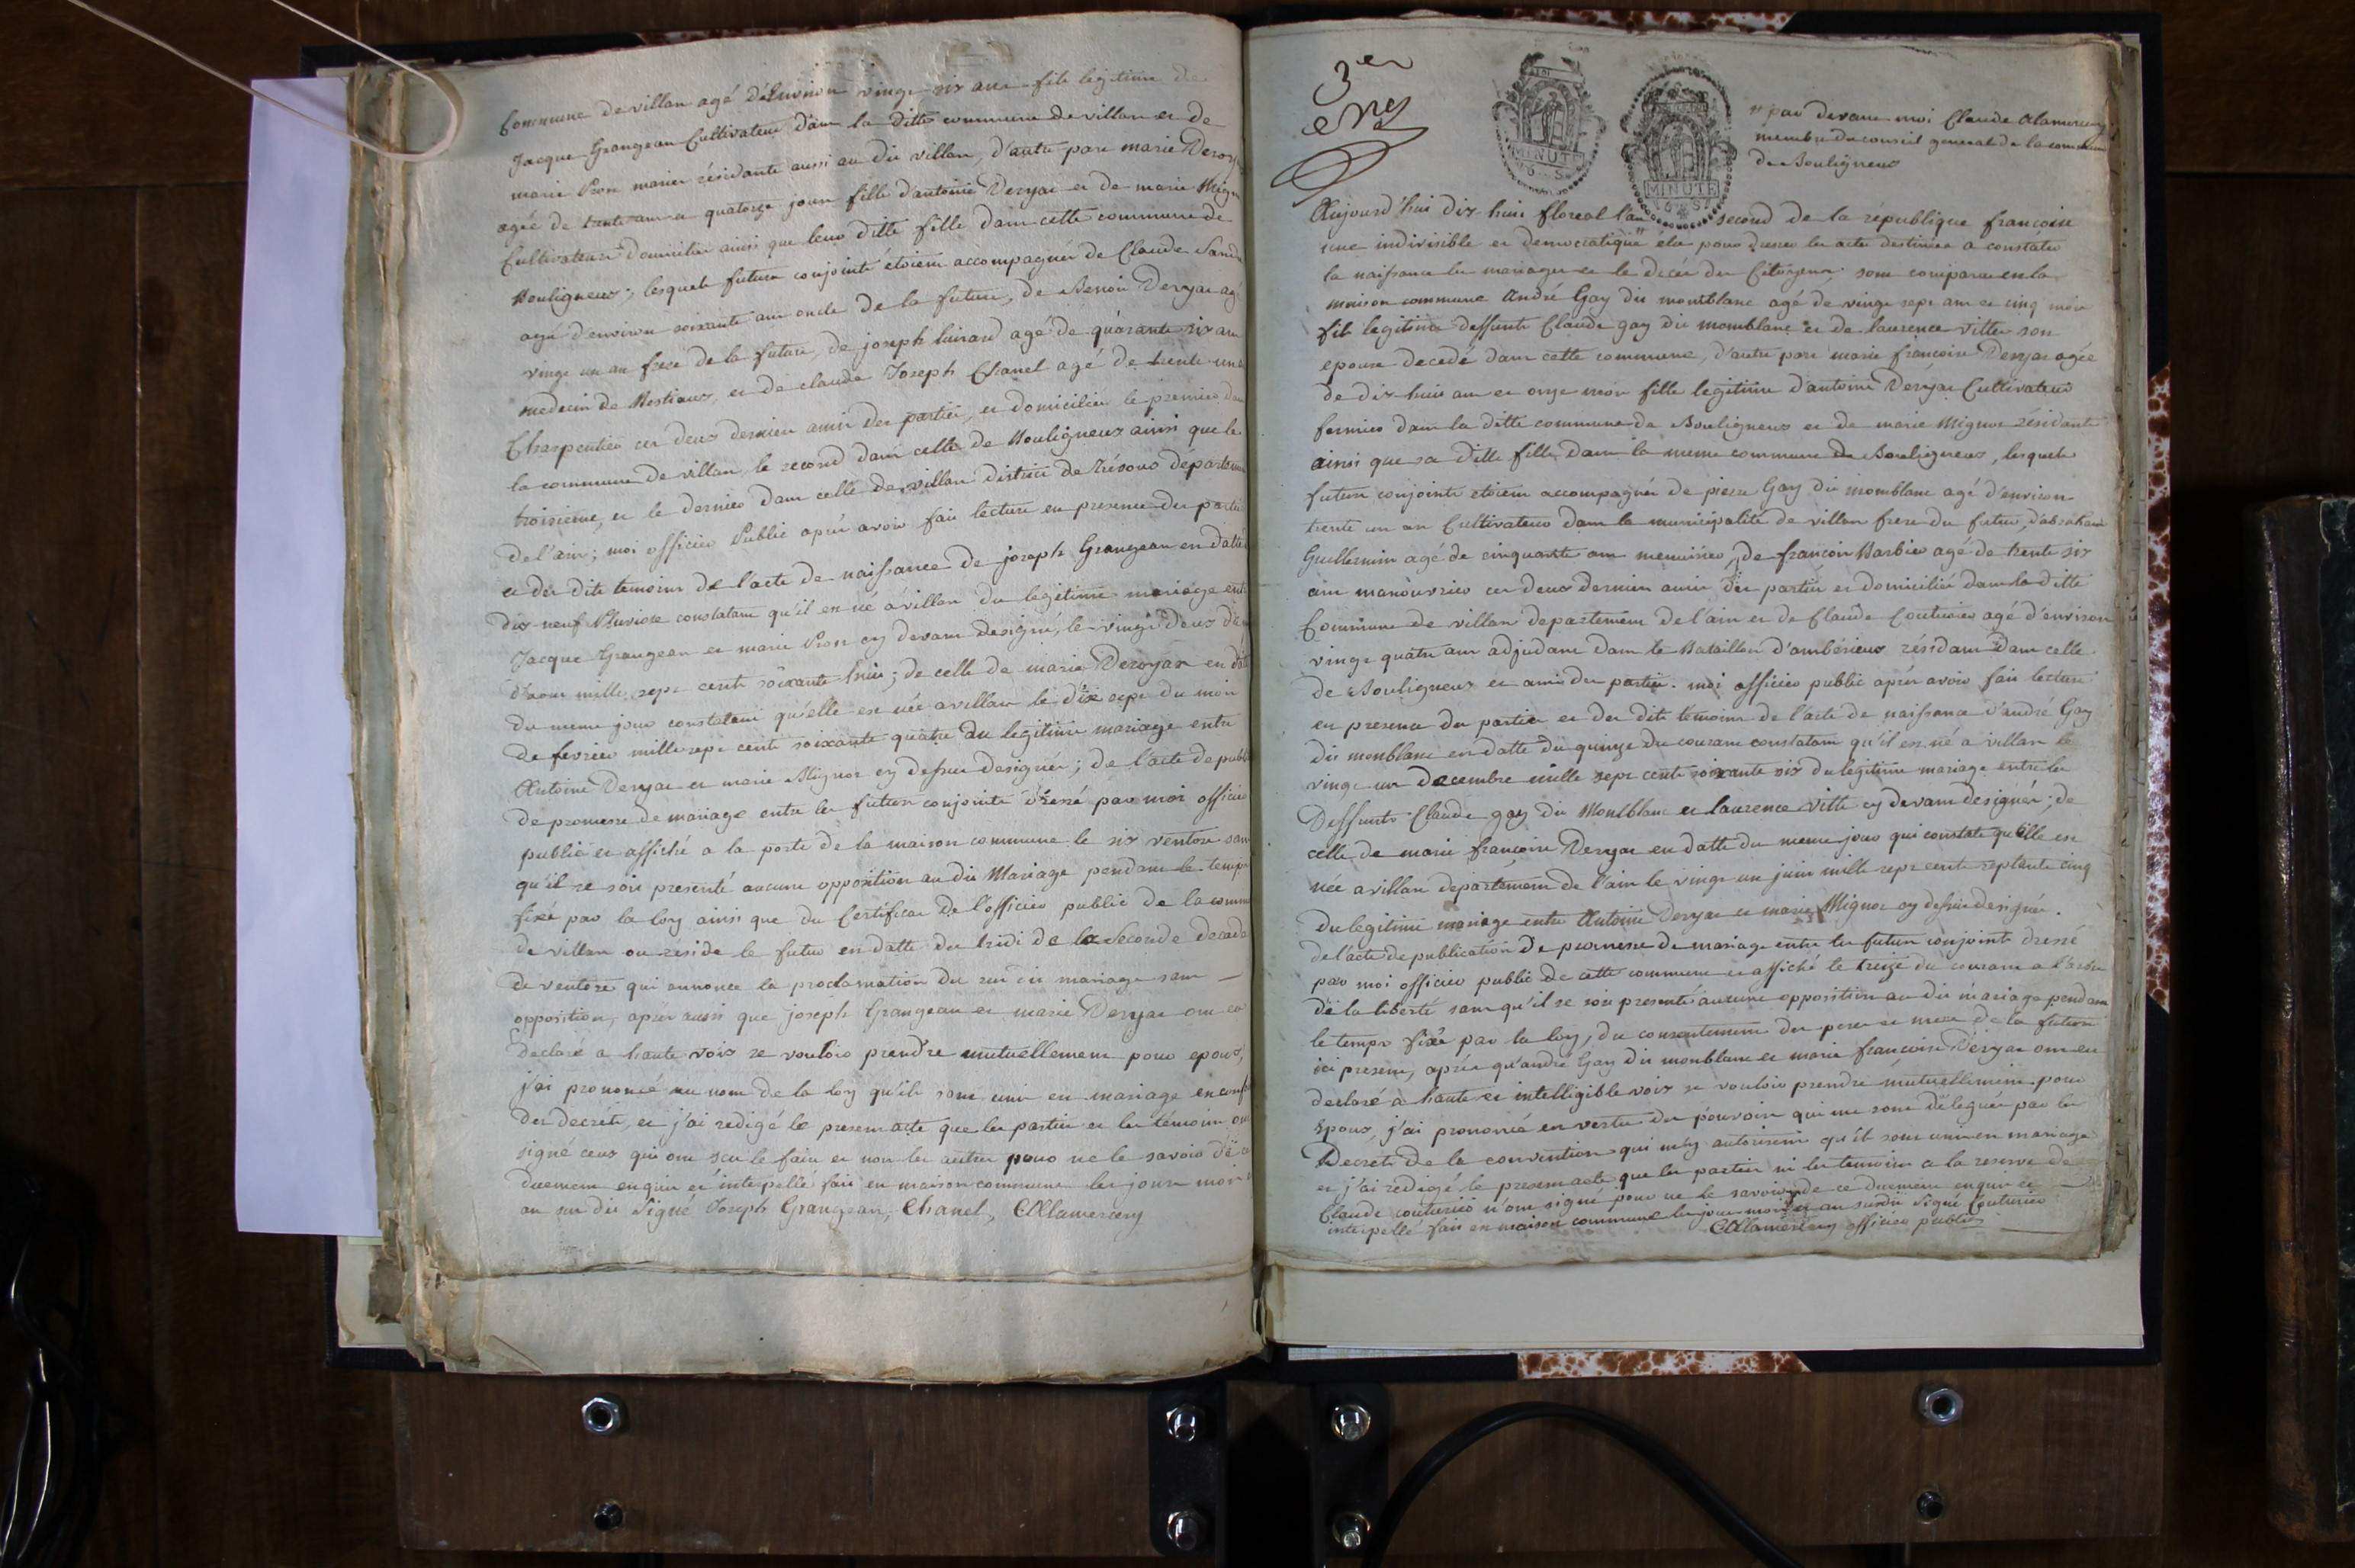 Commune de villan agé d'environ vingt six ans fils legitime de
Jacque Grangean Cultivateur dans la ditte commune de villan et de
marie Pron mariés résidants aussi au dit villan, d'autre part marie
agée de trente ans et quatorze jours fille d'antoine Deryat et de marie
Cultivateurs domiciliés ainsi que leur ditte fille dans cette commune de
Bouligneux; lesquels futurs conjoints étoient accompagnés de Claude
agé d'environ soixante ans oncle de la future, de Benoit Deryat agé
vingt un an frere de la future, de joseph luirard agé de quarante six ans
medecin de, et de claude Joseph Chanel agé de trente un
Charpentier ces deux derniers amis des parties, et domiciliés le premier dans
la commune de villan, le second dans celle de Bouligneux ainsi que le
troisieme, et le dernier dans celle de villan district de Trévoux départemen
de l'ain; moi officier Public après avoir fait lecture en presence des parties
et des dits temoins de l'acte de naissance de joseph Grangean en datte
dix-neuf Pluviose constatant qu'il est né à villan du legitime mariage entre
Jacque Grangean et marie Pron cy devant designé, le vingt deux
d'aout mille sept cent soixante huit; de celle de marie Deryat en
du meme jour constatant qu'elle est née a villan le dix sept du mois
de fevrier mille sept cent soixante quatre du legitime mariage entre
Antoine Deryat et marie Mignot cy dessus designer; de l'acte de publi
de promesse de mariage entre les futurs conjoints dressé par moi officier
public et affiché a la porte de la maison commune le six ventose sans
qu'il se soit presenté aucune opposition au dit Mariage pendant le temps
fixé par la loy ainsi que du Certificat de l'officier public de la comm
de villan ou reside le futur en datte du tridi de la Seconde decade
de ventose qui annonce la proclamation du sus dit mariage sans
opposition, après aussi que joseph Grangean et marie Deryat ont
declaré a haute voix se vouloir prendre mutuellement pour epoux,
j'ai prononcé au nom de la loy qu'ils sont unis en mariage en conf
des decrets, et j'ai redigé le present acte que les parties et les témoins ont
signé ceux qui ont sçu le faire et non les autres pour ne le savoir de
duement enquis et interpellé fait en maison commune les jours mois
an sus dit Signé Joseph Grangean, Chanel, CAlamercery
3er
MINUTE
MINUTE
" par devant moi Claude Alamercery
membre du conseil general de la commune
de Bouligneux
Aujourd'hui dix-huit floreal l'an second de la république françoise
une indivisible et democratique" élu pour dresser les actes destinés a constater
la naissance les mariages et le decés des Citoyens, sont comparus en la
maison commune André Gay dit montblanc agé de vingt sept ans et cinq mois
fils legitime deffunts Claude gay dit momblanc et de laurence vitte son
epouse decedé dans cette commune, d'autre part marie françoise Deryat agée
de dix-huit ans et onze mois fille legitime d'antoine Deryat Cultivateur
fermier dans la ditte commune de Bouligneux et de marie Mignot résidante
ainsi que sa ditte fille dans la meme commune de Bouligneux, lesquels
futurs conjoints etoient accompagnés de pierre Gay dit momblanc agé d'environ
trente un an Cultivateur dans la municipalité de villan frere du futur, d'abraham
Guillermin agé de cinquante ans menuisier, de françois Barbier agé de trente six
ans manouvrier ces deux derniers amis des parties et domiciliés dans la ditte
Commune de villan departement de l'ain et de Claude Couturier agé d'environ
vingt quatre ans adjudant dans le Bataillon d'ambérieux résidant dans celle
de Bouligneux et amis des parties. moi officier public après avoir fait lecture
en presence des parties et des dits temoins de l'acte de naissance d'andré Gay
dit monblanc en datte du quinze du courant constatant qu'il est né a villan le
vingt un Decembre mille sept cent soixante six du legitime mariage entre les
Deffunts Claude gay dit Montblanc et laurence vitte cy devant designés; de
celle de marie françoise Deryat en datte du meme jour qui constate qu'elle est
née a villan département de l'ain le vingt un juin mille sept cent septante cinq
du legitime mariage entre Antoine Deryat et marie Mignot cy dessus designés.
de l'acte de publication de promesse de mariage entre les futurs conjoints dressé
par moi officier public de cette commune et affiché le treize du courant a l'arbre
de la liberté sans qu'il se soit presenté aucune opposition au dit mariage pendant
le temps fixé par la loy, du consentement des pere et mere de la future
ici present, après qu'andré Gay dit monblanc et marie françoise Deryat ont eu
declaré à haute et intelligible voix se vouloir prendre mutuellement pour
epoux, j'ai prononcé en vertu des pouvoirs qui me sont délegués par les
Decrets de la convention qui m'y autorisent qu'ils sont unis en mariage
et j'ai redigé le present acte que les parties ni les temoins a la reserve de
Claude couturier n'ont signé pour ne le savoir de ce duement enquis et
interpellé fait en maison commune les jour mois et an susdit Signé Couturier
CAlamercery officier public